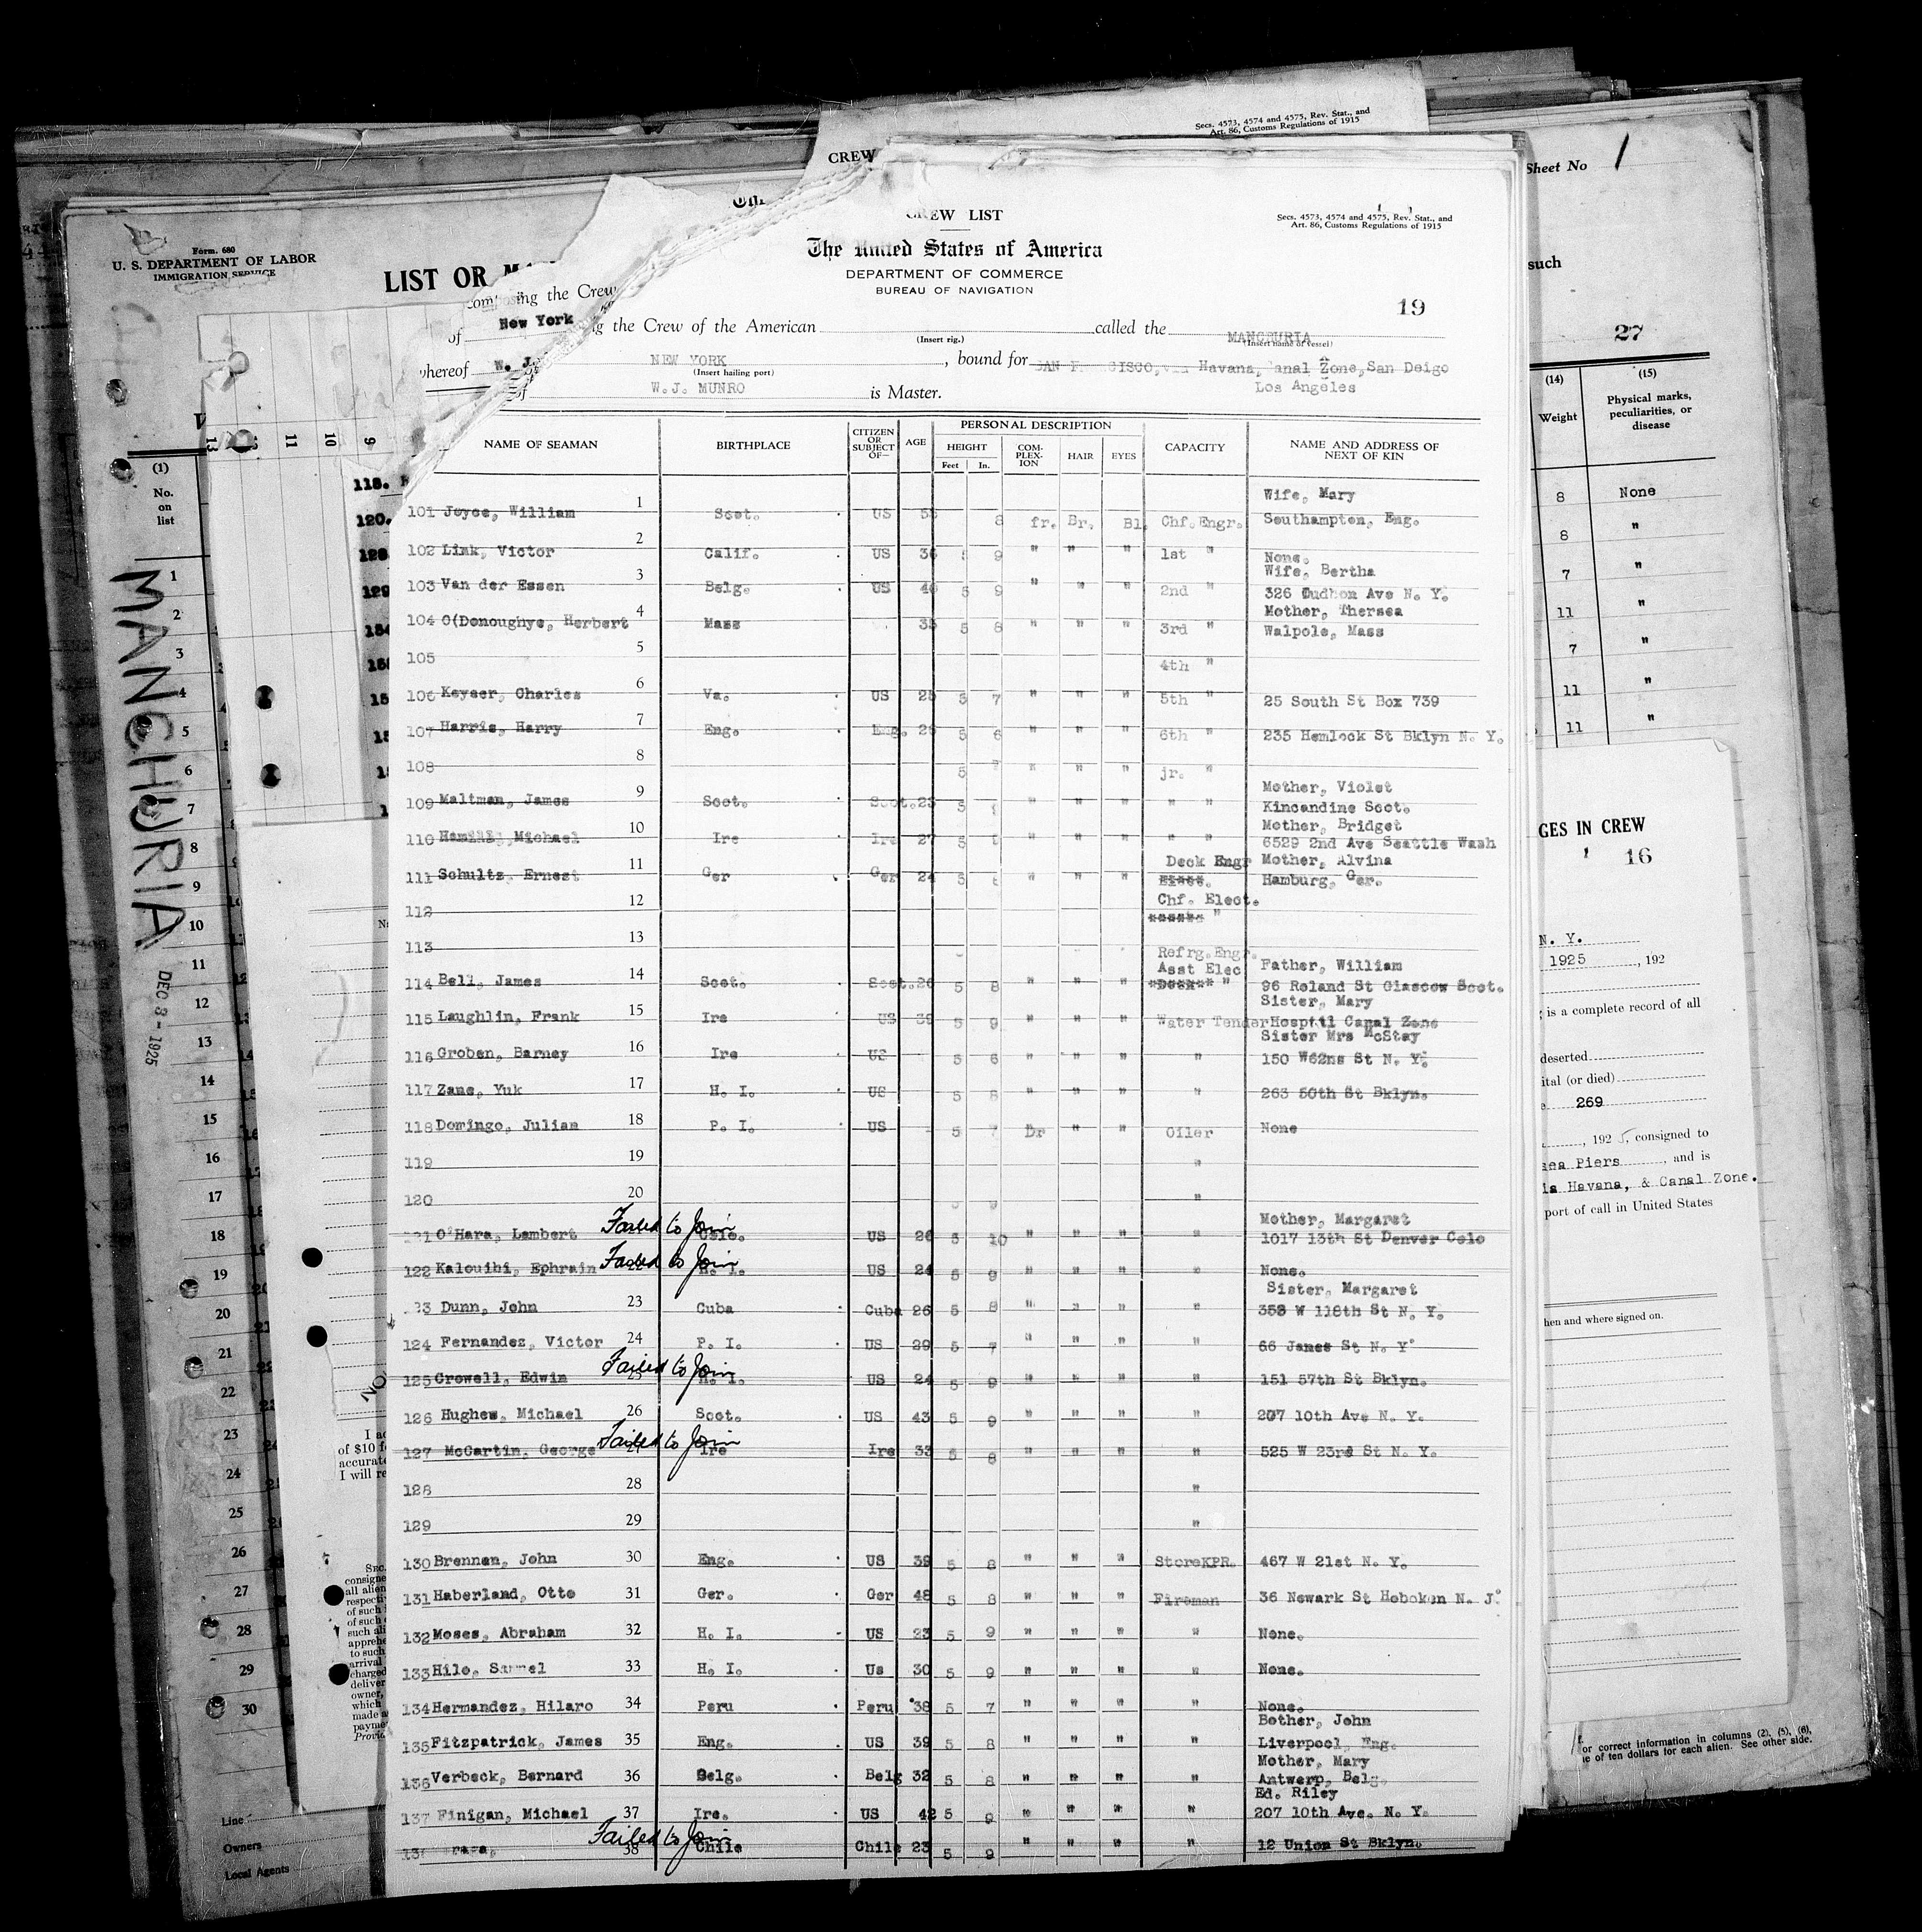 Secs. 4573, 4574 and 4575, Rev. Stat., and
Art. 86, Customs Regulations of 1915
CREW
Sheet No 1
such
27
(14) (15)
Weight Physical marks, peculiarities, or disease
8 None
8 "
7 "
11 "
7 "
11 "
11 "
Form. 680
U. S. DEPARTMENT OF LABOR
IMMIGRATION SERVICE
LIST OR
composing the Crew
of New York
whereof W. J.
(1)
No.
on
list
MANCHURIA
DEC 8 - 1925
1
2
3
4
5
6
7
8
9
10
11
12
13
14
15
16
17
18
19
20
21
22
23
24
25
26
27
28
29
30
Line
Owners
Local Agents
13 12 11 10 9
118.
120.
CREW LIST
Secs. 4573, 4574 and 4575, Rev. Stat., and
Art. 86, Customs Regulations of 1915
The United States of America
DEPARTMENT OF COMMERCE
BUREAU OF NAVIGATION
19
the Crew of the American called the MANCHURIA
(Insert rig.) (Insert name of vessel)
NEW YORK, bound for SAN FRANCISCO, via Havana, Canal Zone, San Deigo
(Insert hailing port)
of W.J. MUNRO is Master. Los Angeles
NAME OF SEAMAN BIRTHPLACE CITIZEN OR SUBJECT OF— AGE PERSONAL DESCRIPTION CAPACITY NAME AND ADDRESS OF NEXT OF KIN
HEIGHT COMPLEXION HAIR EYES
Feet In.
Wife, Mary
101 Joyce, William 1 Scot. US 8 fr. Br. Bl. Chf. Engr. Southampton, Eng.
102 Link, Victor 2 Calif. US 36 5 9 " " " 1st " None.
Wife, Bertha
103 Van der Essen 3 Belg. US 5 9 " " " 2nd " 326 Ave N. Y.
Mother, Thersea
104 O(Donoughye, Herbert 4 Mass 5 8 " " " 3rd " Walpole, Mass
105 5 4th "
106 Keyser, Charles 6 Va. US 5 7 " " " 5th " 25 South St Box 739
107 Harris, Harry 7 Eng. Eng. 5 6 " " " 6th " 235 Hemlock St Bklyn N. Y.
108 8 5 " " " jr. "
Mother, Violet
109 Maltman, James 9 Scot. Scot. 23 5 " " " " " Kincandine Scot.
Mother, Bridget
110 Michael 10 Ire Ire 27 5 " " " " " 6529 2nd Ave Seattle Wash
Deck Engr Mother, Alvina
111 Schultz, Ernest 11 Ger Ger 24 5 " " " Hamburg, Ger.
Chf. Elect.
112 12 "
113 13 Refrg. Engr.
Asst Elec Father, William
114 Bell, James 14 Scot. Scot. 26 5 8 " " " " 96 Roland St Glascow Scot.
Sister, Mary
115 Laughlin, Frank 15 Ire US 5 9 " " " Water Tender Hosptil Canal Zone
Sister Mrs McStay
116 Groben, Barney 16 Ire US 5 6 " " " " 150 W62ns St N. Y.
117 Zane, Yuk 17 H. I. US 5 8 " " " " 263 50th St Bklyn.
118 Domingo, Julian 18 P. I. US 5 7 Dr " " Oiler None
119 19 "
120 20 "
Mother, Margaret
121 O'Hara, Lambert Failed to Join Colo. US 26 5 10 " " " " 1017 13th St Denver Colo
122 Kalouihi, Ephrain 22 Failed to Join H. I. US 24 5 9 " " " " None.
Sister, Margaret
23 Dunn, John 23 Cuba Cuba 26 5 8 " " " " 358 W 118th St N. Y.
124 Fernandez, Victor 24 P. I. US 29 5 7 " " " " 66 James St N. Y
125 Crowell, Edwin 25 Failed to Join H. I. US 24 5 9 " " " " 151 57th St Bklyn.
126 Hughes, Michael 26 Scot. US 43 5 9 " " " " 207 10th Ave N. Y.
127 McCartin, George Failed to Join Ire Ire 33 5 8 " " " " 525 W 23rd St N. Y.
128 28 "
129 29 "
130 Brennen, John 30 Eng. US 39 5 8 " " " StoreKPR. 467 W 21st N. Y.
131 Haberland, Otto 31 Ger. Ger 48 5 8 " " " Fireman 36 Newark St Hoboken N. J.
132 Moses, Abraham 32 H. I. US 23 5 9 " " " " None.
133 Hilo, Samuel 33 H. I. Us 30 5 9 " " " " None.
134 Hermandez, Hilaro 34 Peru Peru 38 5 7 " " " " None.
Bother, John
135 Fitzpatrick, James 35 Eng. US 39 5 8 " " " " Liverpool, Eng.
Mother, Mary
136 Verbeck, Bernard 36 Belg. Belg 32 5 8 " " " " Antwerp, Belg.
Ed. Riley
137 Finigan, Michael 37 Ire. US 42 5 9 " " " " 207 10th Ave. N. Y.
38 Failed to Join Chile Chile 23 5 9 " " " " 12 Union St Bklyn.
GES IN CREW
16
N. Y.
1925, 192
is a complete record of all
deserted
ital (or died)
269
, 192 5, consigned to
sea Piers, and is
ia Havana, & Canal Zone.
port of call in United States
hen and where signed on.
or correct information in columns (2), (5), (6),
ne of ten dollars for each alien. See other side.
NO
I a
of $10 f
accurate
I will re
SEC.
consigne
all alien
respecti
of such
of such
such ali
apprehe
to such
arrival
charged
deliver
owner,
which
made a
payme
Provi